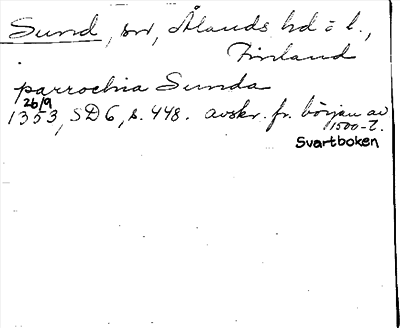 Sund, sn, Ålands hd o l.,
Finland
parrochia Sunda
26/9
1353, SD 6, s. 448. avskr. fr. början av
1500-t.
Svartboken